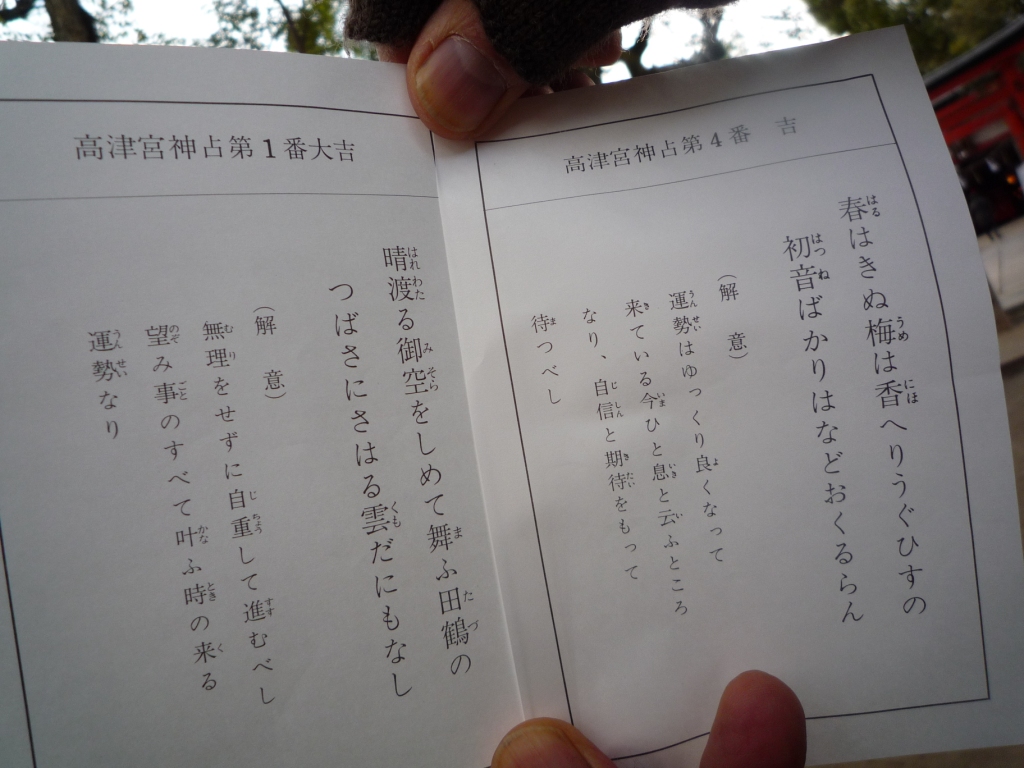 高津宮神占第4番 吉
春はきぬ梅は香へりうぐひすの
初音ばかりはなどおくるらん
(解 意)
運勢はゆっくり良くなって
来ている今ひと息と云ふところ
なり、自信と期待をもって
待つべし
高津宮神占第1番大吉
晴渡る御空をしめて舞ふ田鶴の
つばさにさはる雲だにもなし
(解 意)
無理をせずに自重して進むべし
望み事のすべて叶ふ時の来る
運勢なり